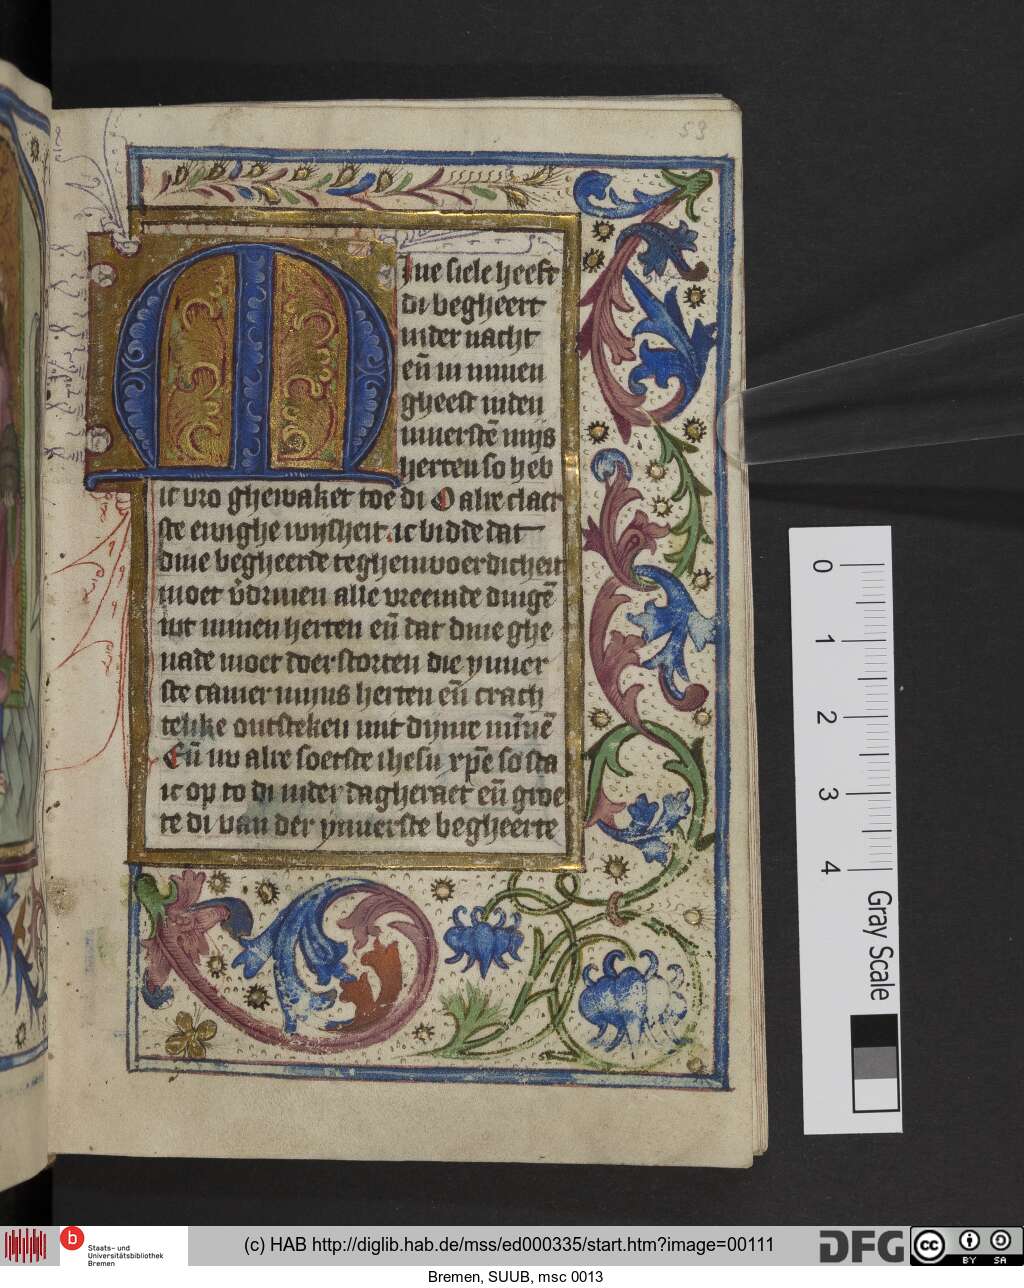 59
Mine siele heeft
di begheert
inder nacht
en̄ in minen
gheest inden
innerstē mijs
herten so heb
ic vro ghewaket toe di O alre claer
ste ewighe wijsheit .ic bidde dat
dine begheerde teghenwoerdicheit
moet v̄driuen alle vreemde dingē
wt minen herten en̄ dat dine ghe
nade moet doer storten die ynner
ste camer mijns herten en̄ crach
telike ontsteken mit dijnre mīnē
En̄ uw alre soetste ihesu xp̄e so sta
ic op to di inder dagheraet en̄ groe
te di van der ynnerste begheerte
0
1
2
3
4
Gray Scale
b
Staats- und
Universitätsbibliothek
Bremen
(c) HAB http://diglib.hab.de/mss/ed000335/start.htm?image=00111
DFG
cc BY SA
Bremen, SUUB, msc 0013